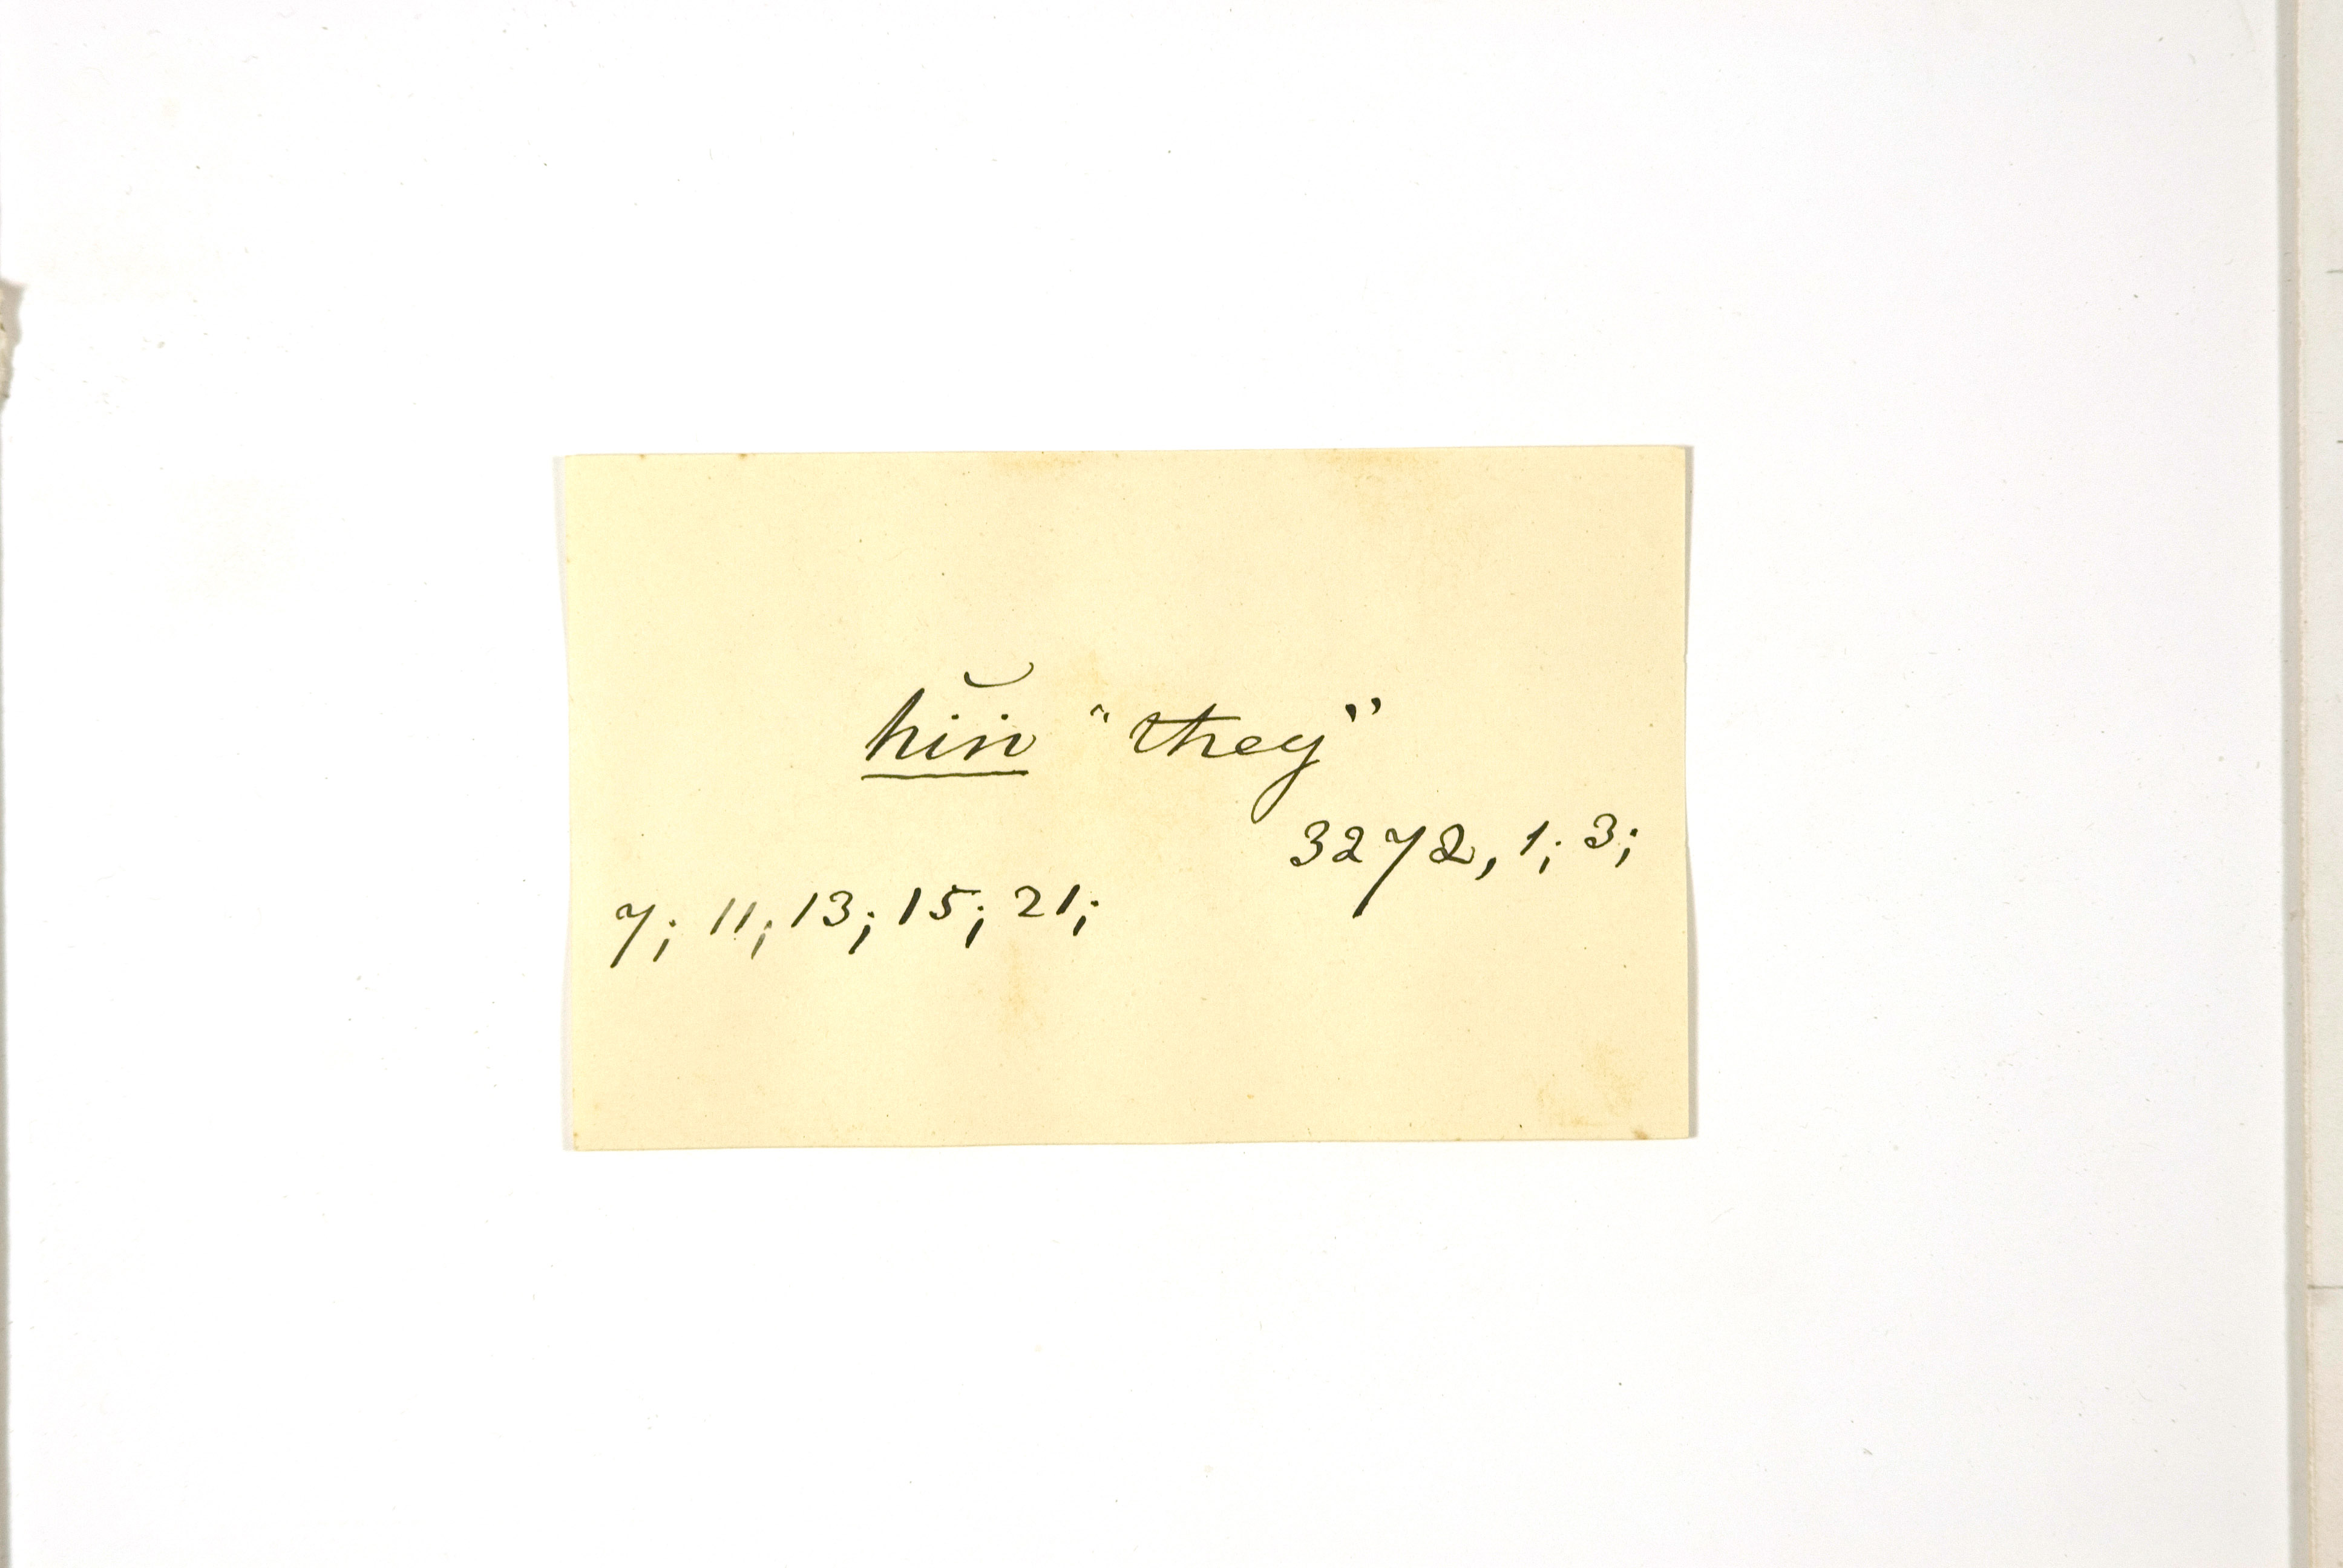 hiĭn "they"
3272, 1; 3;
7; 11; 13; 15; 21;